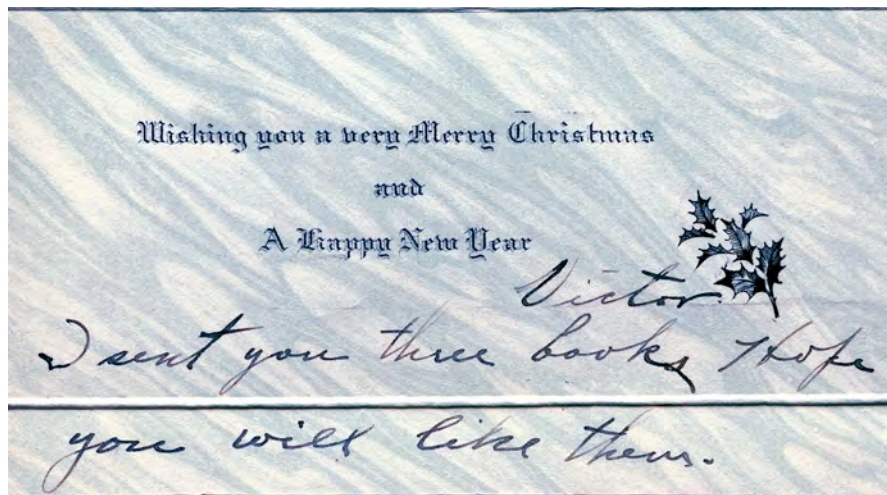 Wishing you a very Merry Christmas
and
A Happy New Year
Victor.
I sent you three books, Hope
you will like them.